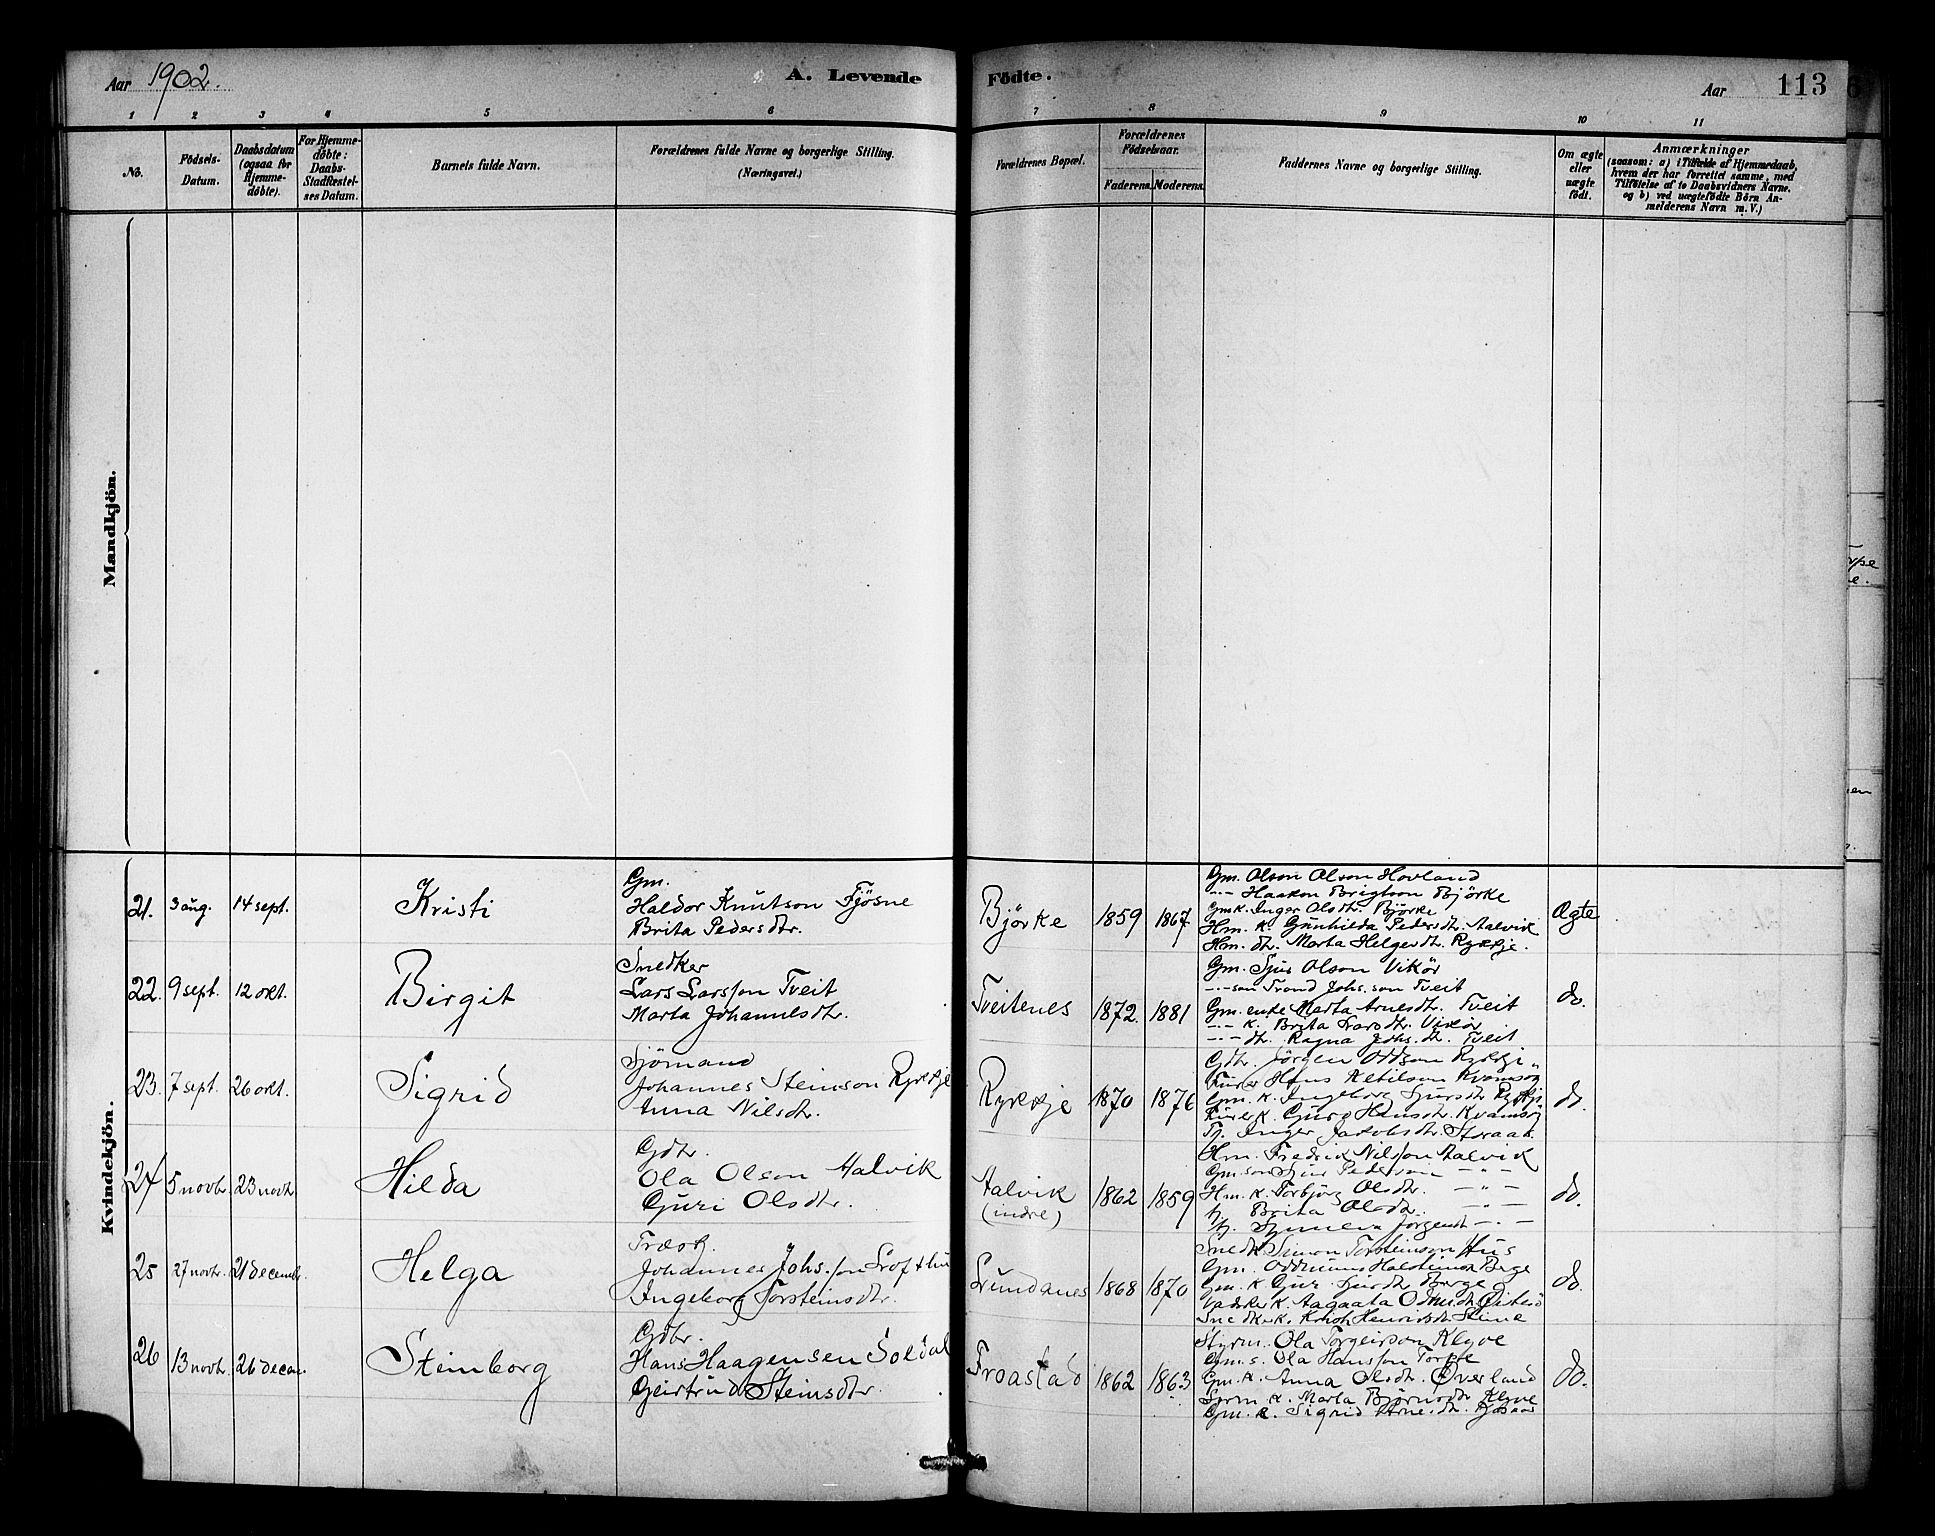 Aar 1902.
A. Levende Födte.
Aar 113
1 2 3 4 5 6 7 8 9 10 11
No.
Födsels-
Datum.
Daabsdatum
(ogsaa for
Hjemme-
döbte).
For Hjemme-
döbte:
Daabs-
Stadfæstel-
ses Datum.
Barnets fulde Navn.
Forældrenes fulde Navne og borgerlige Stilling.
(Næringsvei.)
Forældrenes Bopæl.
Forældrenes
Födselsaar.
Faderens. Moderens.
Faddernes Navne og borgerlige Stilling.
Om ægte
eller
uægte
födt.
Anmærkninger
(saasom: a) i Tilfælde af Hjemmedaab,
hvem der har forrettet samme, med
Tilföielse af to Daabsvidners Navne.
og b) ved uægtefödte Börn An-
melderens Navn m. V.)
Mandkjön.
Kvindekjön.
21. 3 aug. 14 sept. Kristi
Gm.
Haldor Knutson Fjøsne
Brita Pedersdtr.
Bjørke 1859 1867
Gm. Olson Olson Hovland
-"- Haakon Brigtson Bjørke
Gmk. Inger Olsdtr. Bjørke
Hm. k. Gunhilda Pedersdtr. Aalvik
Hm. dtr. Marta Helgesdtr. Rykkje.
Ægte
22. 9 sept. 12 okt. Birgit
Snedker
Lars Larsson Tveit
Marta Johannesdtr.
Tveitenes 1872. 1881
Gm. Sjur Olson Vikør
-"- son Trond Johs. son Tveit
Gm. enke Marta Arnesdtr. Tveit
-"- k. Brita Larsdtr. Vikør
-"- dtr. Ragna Johs. dtr. Tveit
do.
23. 7 sept. 26 okt. Sigrid
Sjömand
Johannes Steinson Rykkje
Anna Nilsdtr.
Rykkje 1870 1876
Gdbr. Jörgen Oddson Rykkje
Hans Ketilson Kvamsøy
Gm. k. Ingeborg Sjursdtr. Rykkje
k. Guro Hansdtr. Kvamsøy
Tj. Inger Jacobsdtr. Straak.
do.
24 5 novbr. 23 novbr. Hilda
Gdbr.
Ola Olson Aalvik
Guri Olsdtr.
Aalvik
(indre)
1862 1859
Hm. Fredrik Nilsson Aalvik
Gm. son Sjur Pederson -"-
Hm. k. Torbjörg Olsdtr. -"-
tj. Brita Olsdtr. -"-
tj. Synneva Jörgensdtr -"-
do.
25 27 novbr. 21 decembr. Helga
Træsk.
Johannes Johs. son Lofthus
Ingeborg Torsteinsdtr.
Lundanes 1868 1870
Snedk. Simon Torsteinson Hus
Gm. Oddmund Halsteinson Berge
Gm. k Guri Sjursdtr Berge
k. Aagaata
Snedker k. Henriksdtr Steine
do.
26 13 novbr. 26 decem. Steinborg
Gdbr.
Hans Haagensen Soldal
Geirtrud Steinsdtr.
Froastad 1862 1863
Styrm. Ola Torgeirson Klyve
Gm. s. Ola Hansson Torpe
Gm. k. Anna Olsdtr. Øverland
k. Marta Bjørnsdtr. Klyve
Gm. k. Sigrid Arnesdtr.
do.